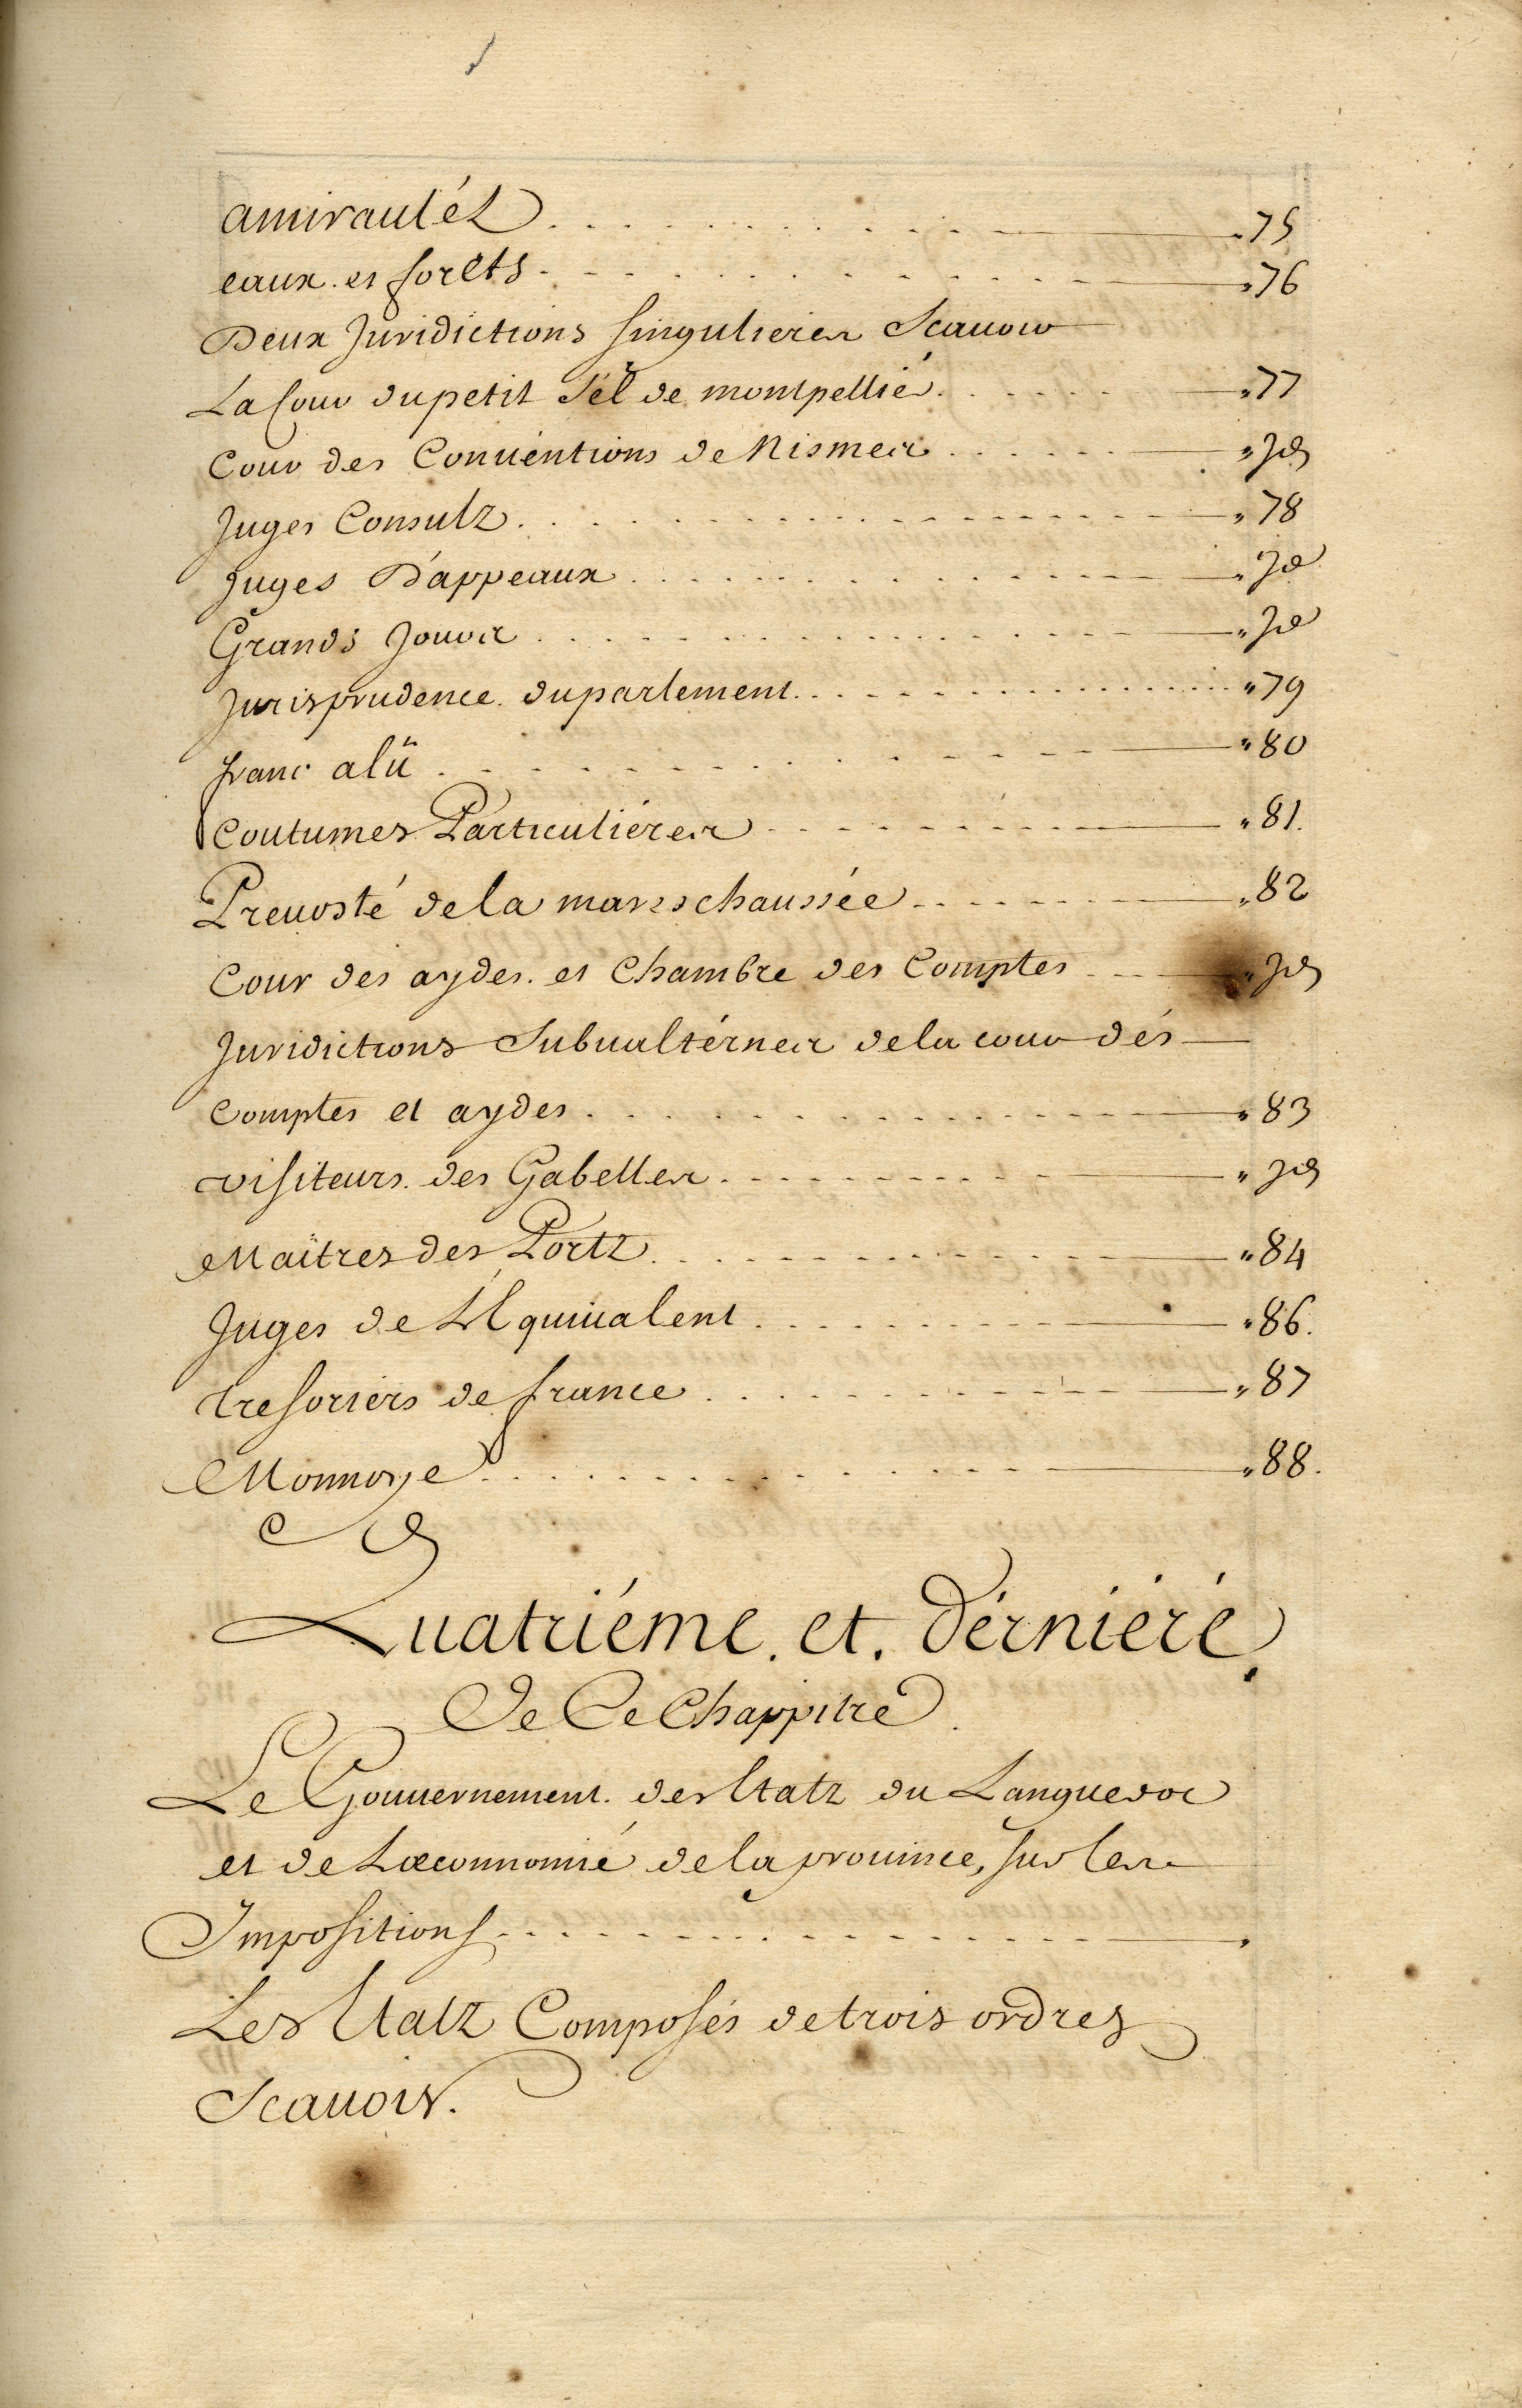 amirautéz . . . . . . . . . . . . „75
eaux et forêts . . . . . . . . . . . . „76
Deux Juridictions singulieres Scauoir
La Cour du petit Sél de montpellié . . . . . . „77
Cour des Conuentions de Nismes . . . . . . „Jd
Juges Consulz . . . . . . . . . . . . „78
Juges D'appeaux . . . . . . . . . . . . „Jd
Grands Jours . . . . . . . . . . . . „Jd
Jurisprudence du parlement . . . . . . . . . . . . „79
franc alü . . . . . . . . . . . . „80
Coutumes Particuliéres . . . . . . . . . „81.
Preuosté de la mareschaussée . . . . . . „82
Cour des aydes et Chambre des Comptes . . . „Jd
Juridictions Subualternes de la cour dés
Comptes et aydes . . . . . . . . . . . . „83
Visiteurs des Gabelles . . . . . . . . . „Jd
Maîtres des Portz . . . . . . . . . „84
Juges de L'Equiualent . . . . . . . . . „86.
tresoriers de france . . . . . . . . . „87
Monnoye . . . . . . . . . . . . „88.
Quatriéme. et. Dérniére.
De Ce Chappitre.
Le Gouuernement des Etatz du Languedoc
et de L'œconnomie de la prouince, sur les
Impositions . . . . . . . . . . . .
Les Etatz Composés de trois ordres
Scauoir.